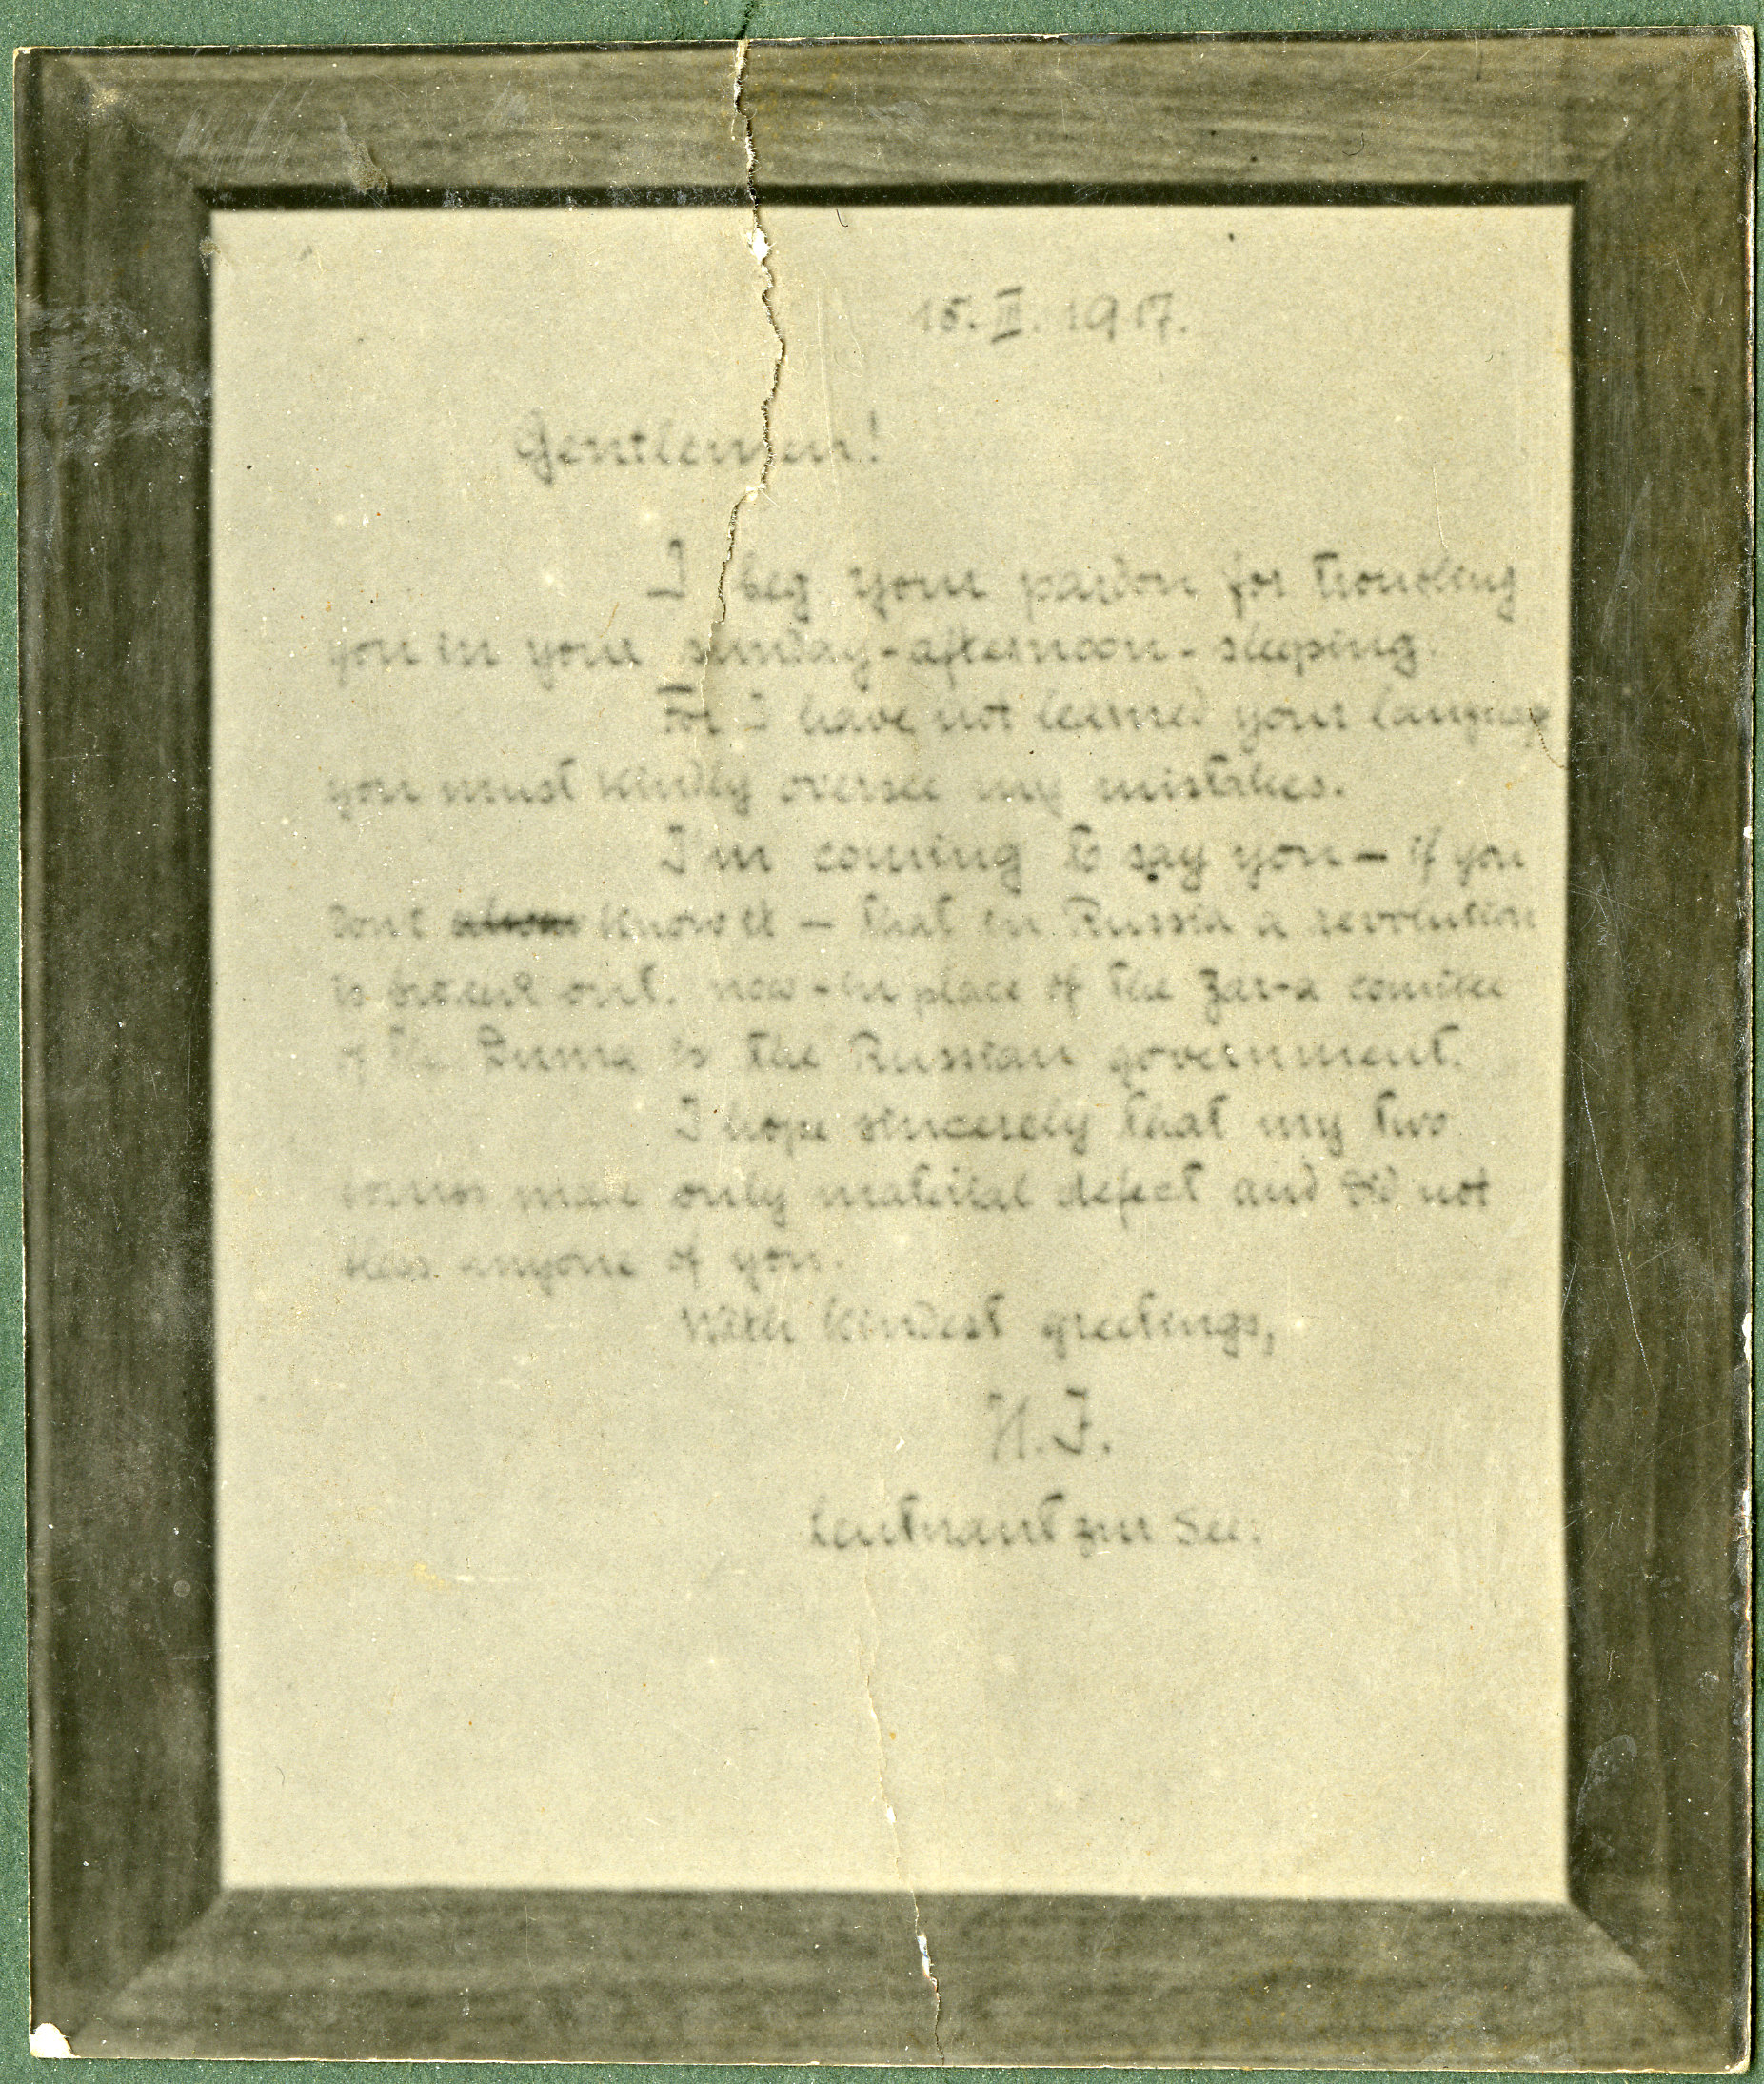 15. III. 1917.
Gentlemen!
I beg your pardon for troubling
you in your sunday-afternoon-sleeping.
For I have not learned your language
you must kindly oversee my mistakes.
I'm coming to say you – if you
dont know it – that in Russia a revolution
is broken out. now – in place of the Zar – a comitee
of the Duma is the Russian government.
I hope sincerely that my two
made only material defect and did not
anyone of you.
With kindest greetings,
Leutnant zur See.